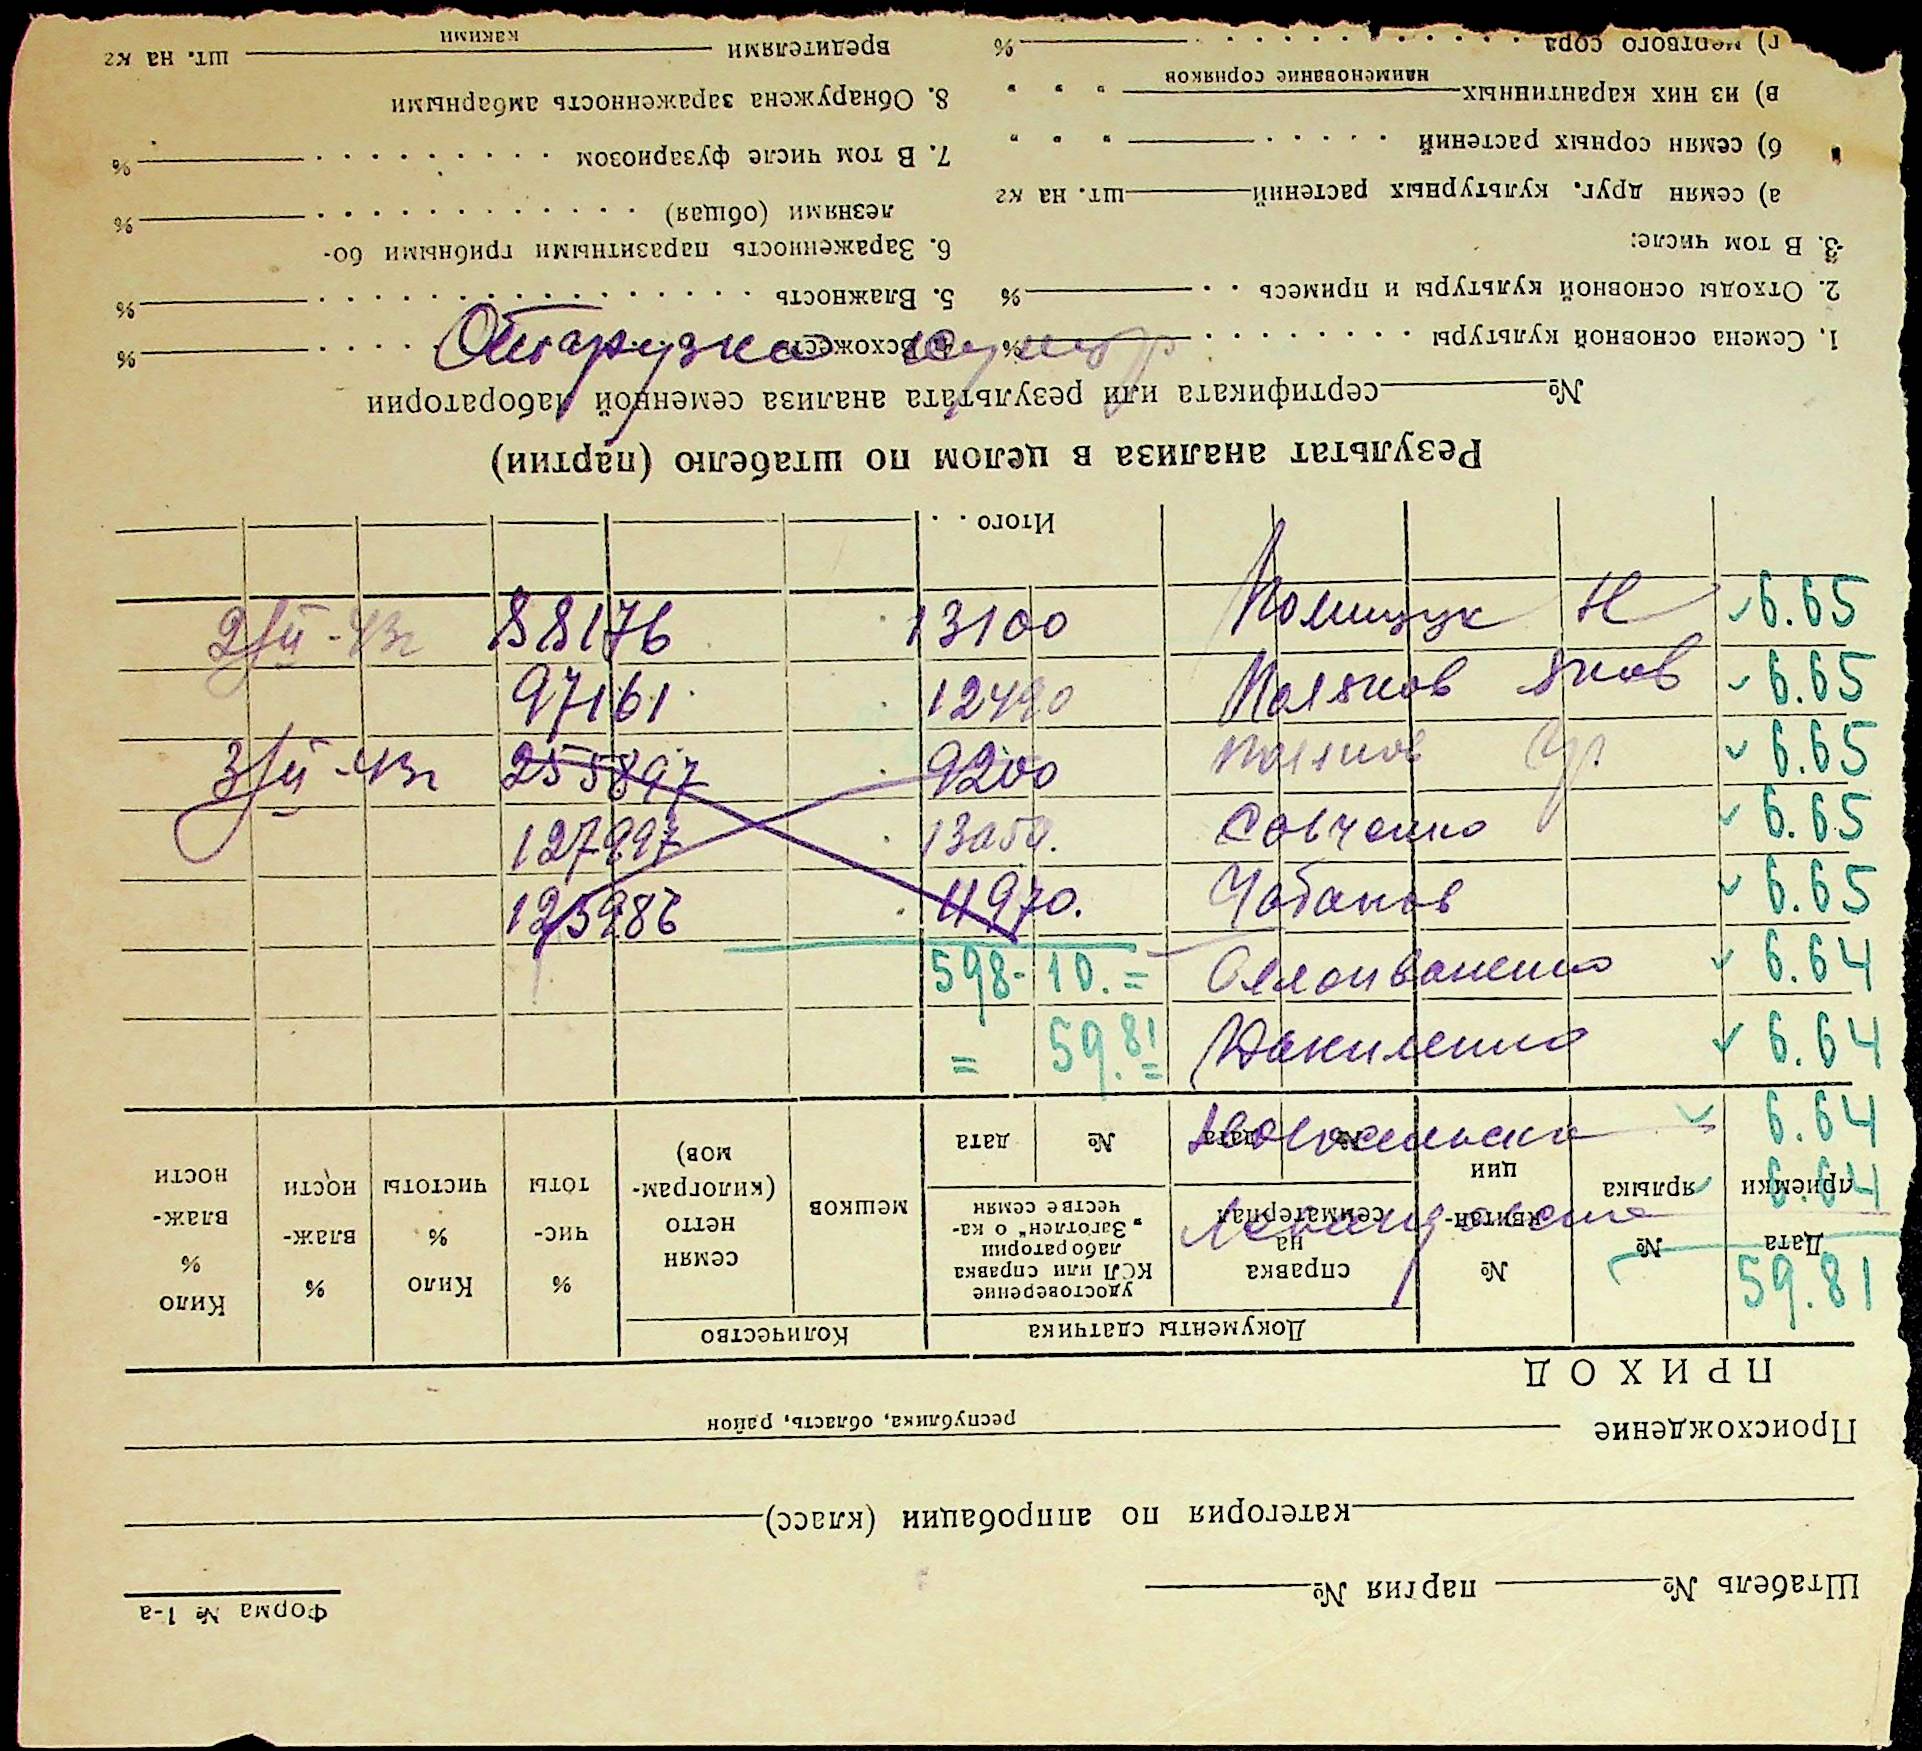 Отгрузка кукур
2/II-43г 88176 13100 Полищук Н 6.65
97161 12490 Поляков Яков 6.65
3/II-43г 255897 9200 Поляков Гр. 6.65
127997 13050. Савченко 6.65
125986 11970. Чабанов 6.65
598-10.= Селиваненко 6.64
= 59.81 Даниленко 6.64
6.64
6.64
59.81
Форма № 1-а
Штабель № партия №
категория по аппробации (класс)
Происхождение
республика, область, район
ПРИХОД
Дата приемки
№ ярлыка
№ квитан-ции
Документы сдатчика
справка на семматериал
№ дата
удостоверение КСЛ или справка лаборатории „Заготлен" о ка-честве семян
№ дата
Количество
мешков
семян нетто (килограм-мов)
% чис-тоты
Кило % чистоты
% влаж-ности
Кило % влаж-ности
Итого . .
Результат анализа в целом по штабелю (партии)
№ сертификата или результата анализа семенной лаборатории
1. Семена основной культуры %
2. Отходы основной культуры и примесь %
3. В том числе:
а) семян друг. культурных растений шт. на кг
б) семян сорных растений " " "
в) из них карантинных " " "
наименование сорняков
г) мертвого сора %
4. Всхожесть %
5. Влажность %
6. Зараженность паразитными грибными бо-
лезнями (общая) %
7. В том числе фузариозом %
8. Обнаружена зараженность амбарными
вредителями шт. на кг
какими